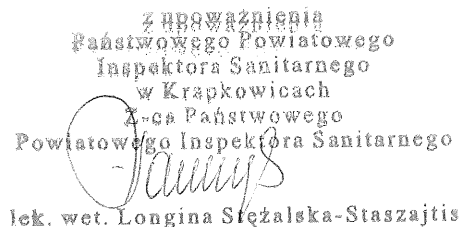 z upoważnienia
Państwowego Powiatowego
Inspektora Sanitarnego
w Krapkowicach
Z-ca Państwowego
Powiatowego Inspektora Sanitarnego
lek. wet. Longina Stężalska-Staszajtis